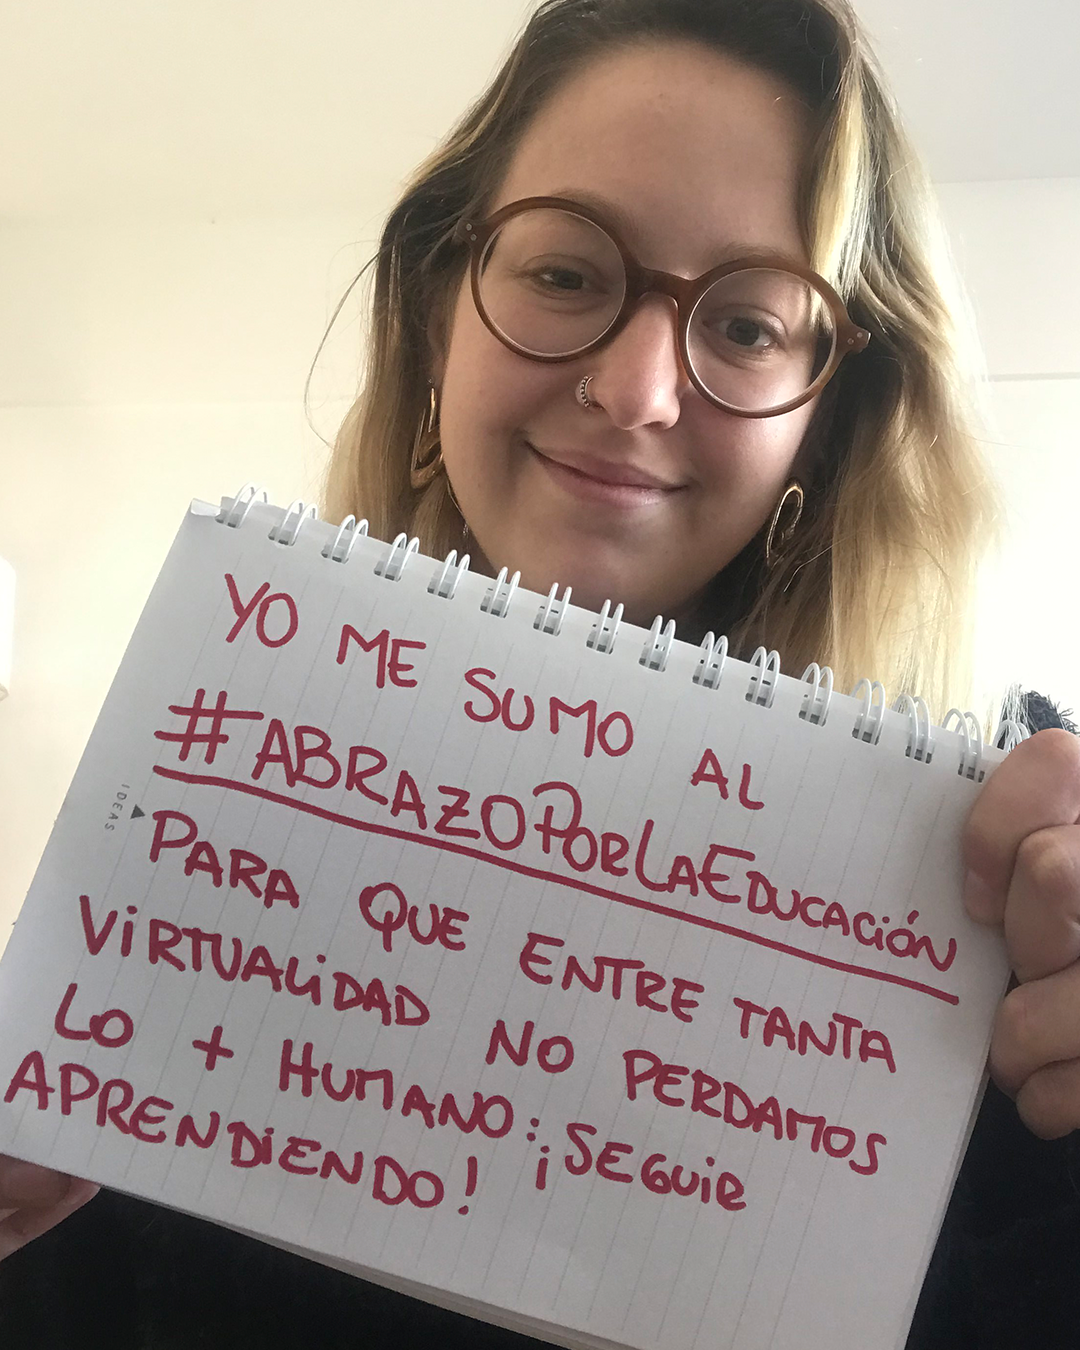 YO ME SUMO AL
#ABRAZOPORLAEDUCACIÓN
PARA QUE ENTRE TANTA
VIRTUALIDAD NO PERDAMOS
LO + HUMANO: ¡SEGUIR
APRENDIENDO!
IDEAS